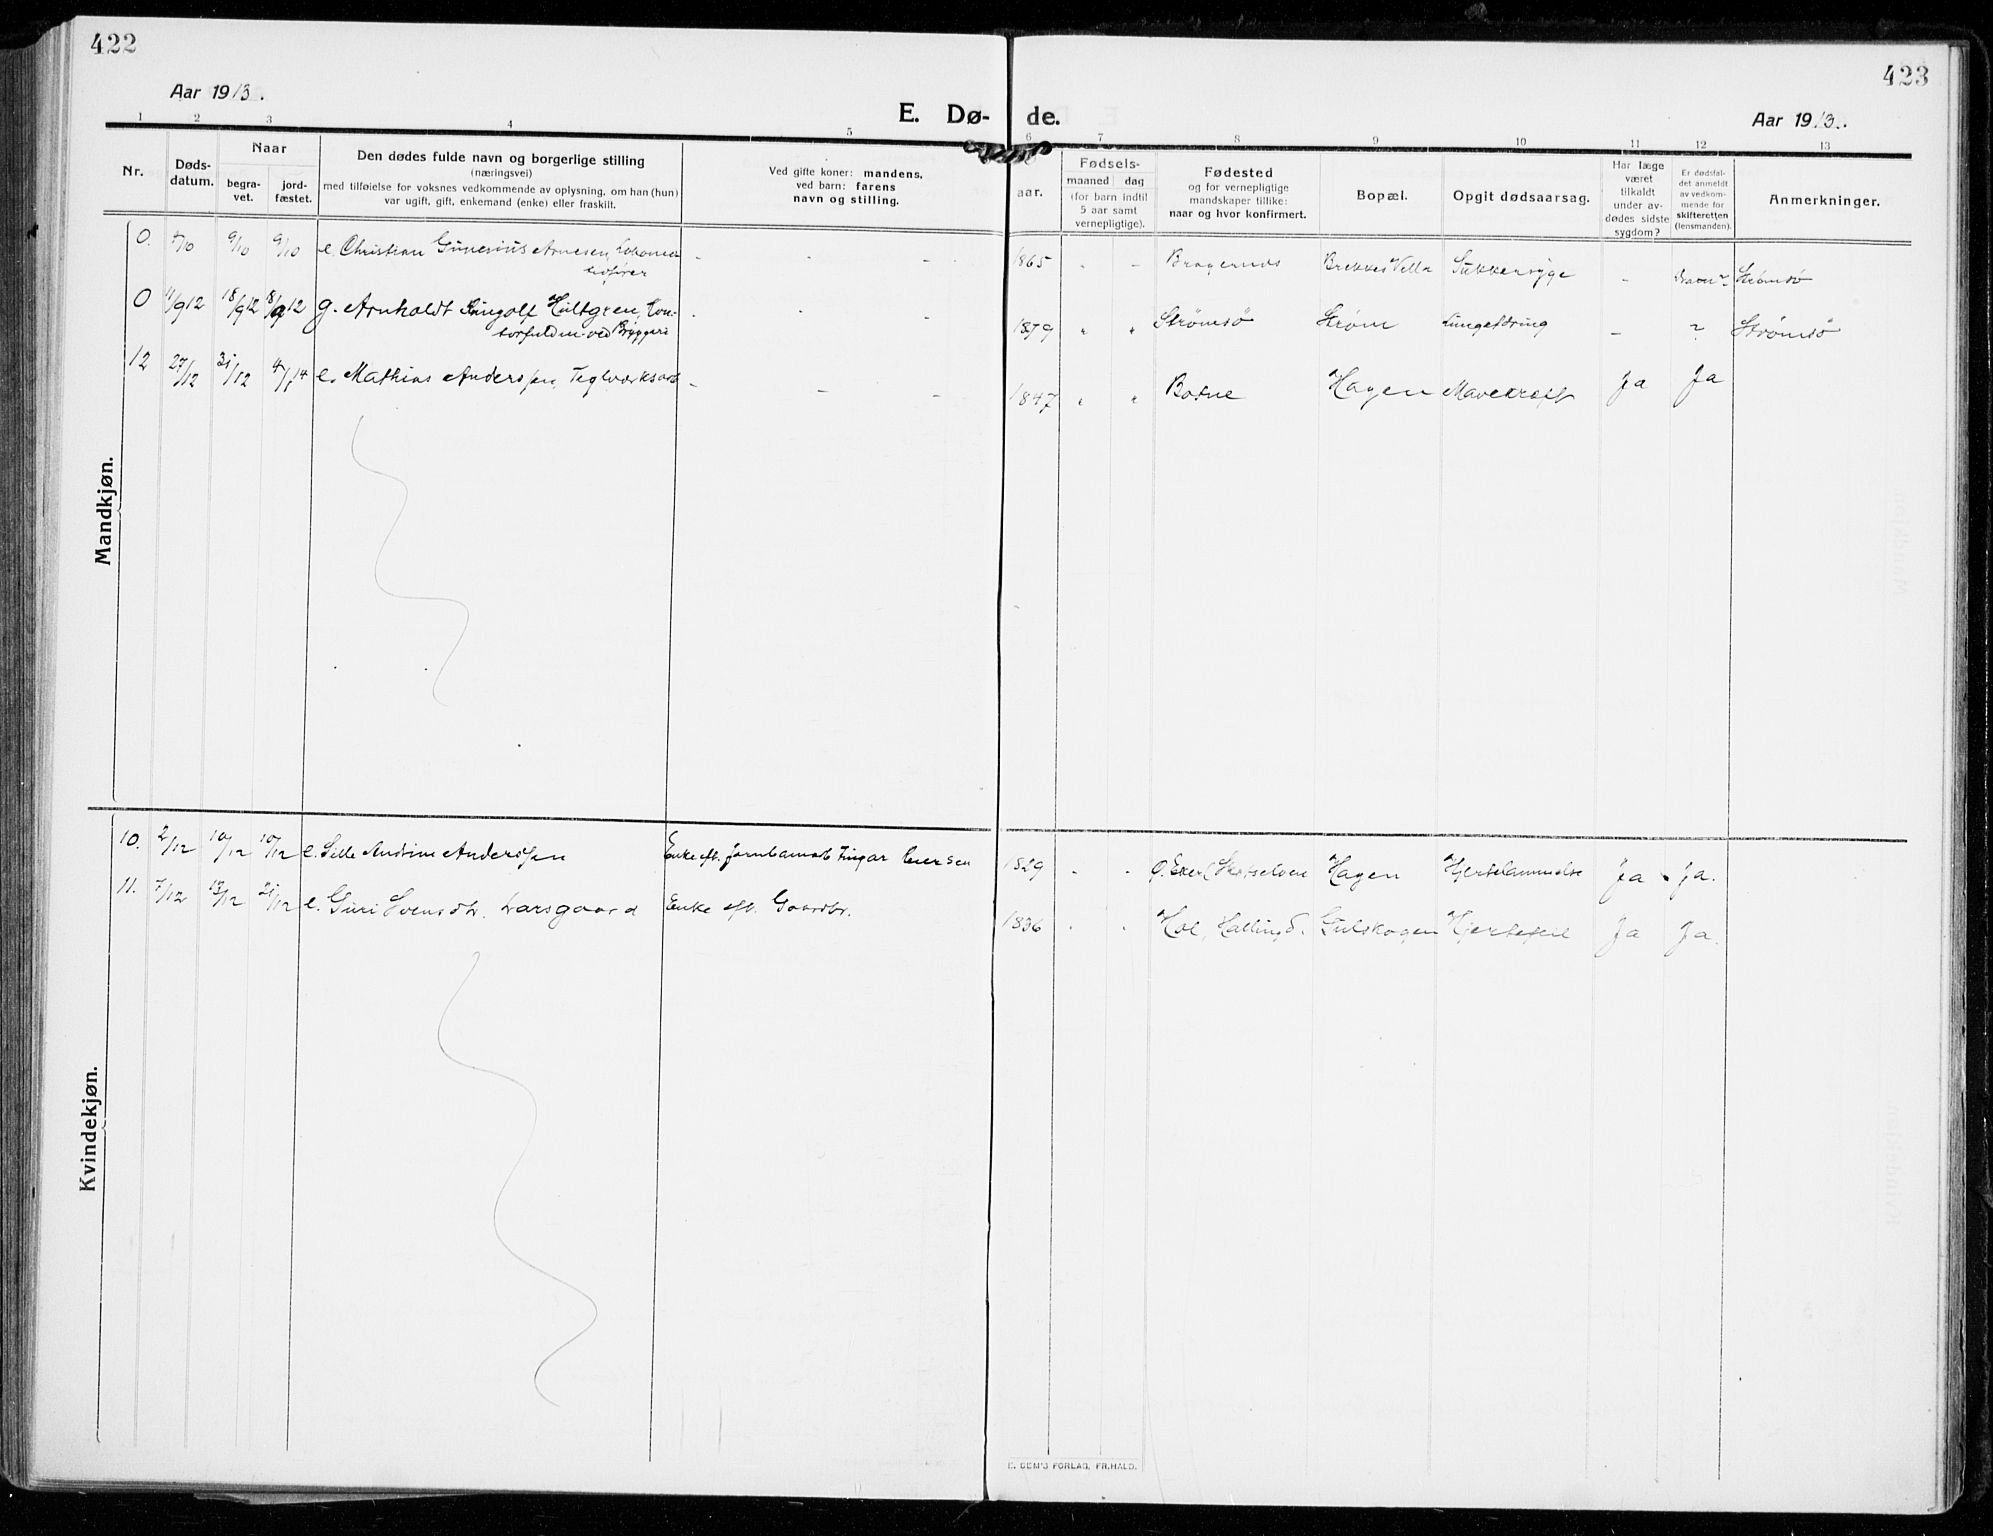 422
423
Aar 1913.
E. Dø-
de.
Aar 1913.
1 2 3 4 5 6 7 8 9 10 11 12 13
Nr.
Døds-
datum.
Naar
begra-
vet.
jord-
fæstet.
Den dødes fulde navn og borgerlige stilling
(næringsvei)
med tilføielse for voksnes vedkommende av oplysning, om han (hun)
var ugift, gift, enkemand (enke) eller fraskilt.
Ved gifte koner: mandens,
ved barn: farens
navn og stilling.
aar.
Fødsels-
maaned dag
(for barn indtil
5 aar samt
vernepligtige).
Fødested
og for vernepligtige
mandskaper tillike:
naar og hvor konfirmert.
Bopæl.
Opgit dødsaarsag.
Har læge
været
tilkaldt
under av-
dødes sidste
sygdom?
Er dødsfal-
det anmeldt
av vedkom-
mende for
skifteretten
(lensmanden).
Anmerkninger.
Mandkjøn.
0. 9/10 9/10 e. Christian Gunerius Arnesen, - - 1865 - - Bragernes Brekkes Villa Sukkersyge - Strømsø
0 11/9 12 18/9 12 18/9 12 g. Arnholdt Hultgren, Kon-
torfuldm. ved Bryggeri - - - 1879 " " Strømsø Strøm - ? Strømsø
12 27/12 31/12 4/1 14 e. Mathias Anderssen, Teglverksarb. - - - 1847 " " Botne Hagen Mavekræft Ja Ja
Kvindekjøn.
10. 2/12 10/12 10/12 e. Andrine Anderssen Enke eft. 1829 " " Ø. Eker (Skotselven Hagen Hjertelammelse Ja Ja.
11. 7/12 13/12 21/12 e. Guri Svensdtr. Larsgaard Enke eft. Gaardbr. 1836 " " Hol, Hallingd. Gulskogen Hjertefeil Ja Ja.
E. SEM'S FORLAG, FR.HALD.